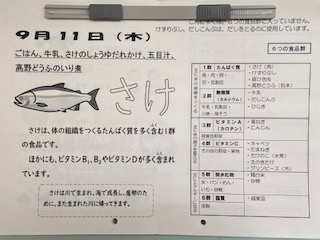 9月11日（木）
ごはん、牛乳、さけのしょうゆだれかけ、五目汁、
高野どうふのいり煮
さけ
さけは、体の組織をつくるたんぱく質を多く含む１群
の食品です。
ほかにも、ビタミンB₁、B₂やビタミンDが多く含まれ
ています。
さけは川で生まれ、海で成長し、産卵のた
めに、また生まれた川に帰ってきます。
６つの食品群に入っていません。
けずりぶし、だしこんぶは、だしをとるのに使用しています。
６つの食品群
１群 たんぱく質
魚・肉・卵・
豆・豆製品
・さけ（魚）
・けずりぶし
・豚ひき肉
２群 無機質
（カルシウム）
牛乳・乳製品・
小魚・海そう
・牛乳
・だしこんぶ
・ひじき
３群 ビタミンA
（カロテン）
緑黄色野菜
・にんじん
４群 ビタミンC
その他の野菜・果物
・キャベツ
・たまねぎ
・たけのこ（水煮）
・えのきたけ
５群 炭水化物
米・パン・めん・
いも・砂糖
・精白米
・砂糖
６群 脂質
油脂